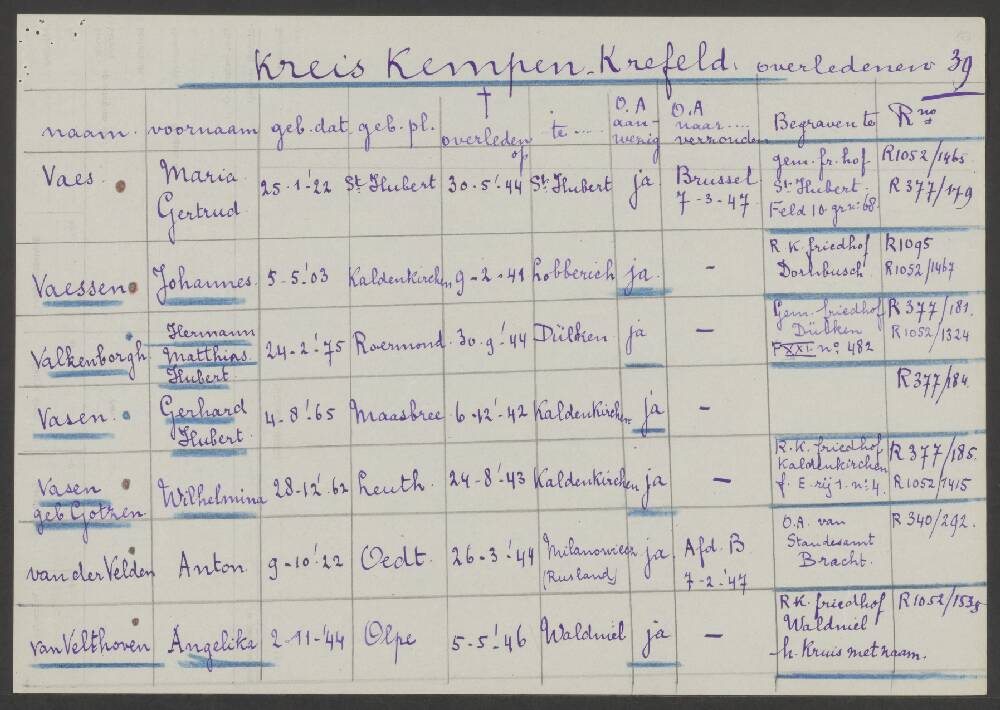 Kreis Kempen-Krefeld. overledenen 39
naam. voornaam geb.dat. geb.pl. † overleden op te .... O.A aanwezig O.A naar.... verzonden Begraven te R nos
Vaes. Maria Gertrud 25-1-'22 St Hubert 30-5-'44 St. Hubert ja Brussel 7-3-47. gem. fr. hof St. Hubert. Feld 10 gr. n: 68. R1052/1465 R377/179
Vaessen Johannes. 5-5-'03 Kaldenkirchen 9-2-41 Lobberich ja. - R.K. friedhof Dornbusch R1095 R1052/1467
Valkenborgh Hermann Matthias Hubert. 24-2-'75 Roermond. 30-9-'44 Dülken ja - Gem. friedhof Dülken F XXI n: 482 R377/181. R1052/1324
Vasen. Gerhard Hubert. 4-8-'65 Maasbree 6-12-'42 Kaldenkirchen ja - R377/184.
Vasen geb Gotzen. Wilhelmina 28-12-'62 Leuth. 24-8-'43 Kaldenkirchen ja - R.K. friedhof Kaldenkirchen f. E. rij 1. n: 4. R377/185. R1052/1415
van der Velden Anton. 9-10-'22 Oedt. 26-3-'44 Milanowicz (Rusland) ja Afd. B 7-2-'47 O.A. van Standesamt Bracht. R340/292.
van Velthoven Angelika 2-11-'44 Olpe 5-5-'46 Waldniel ja - R.K. friedhof Waldniel h. Kruis met naam. R1052/1535